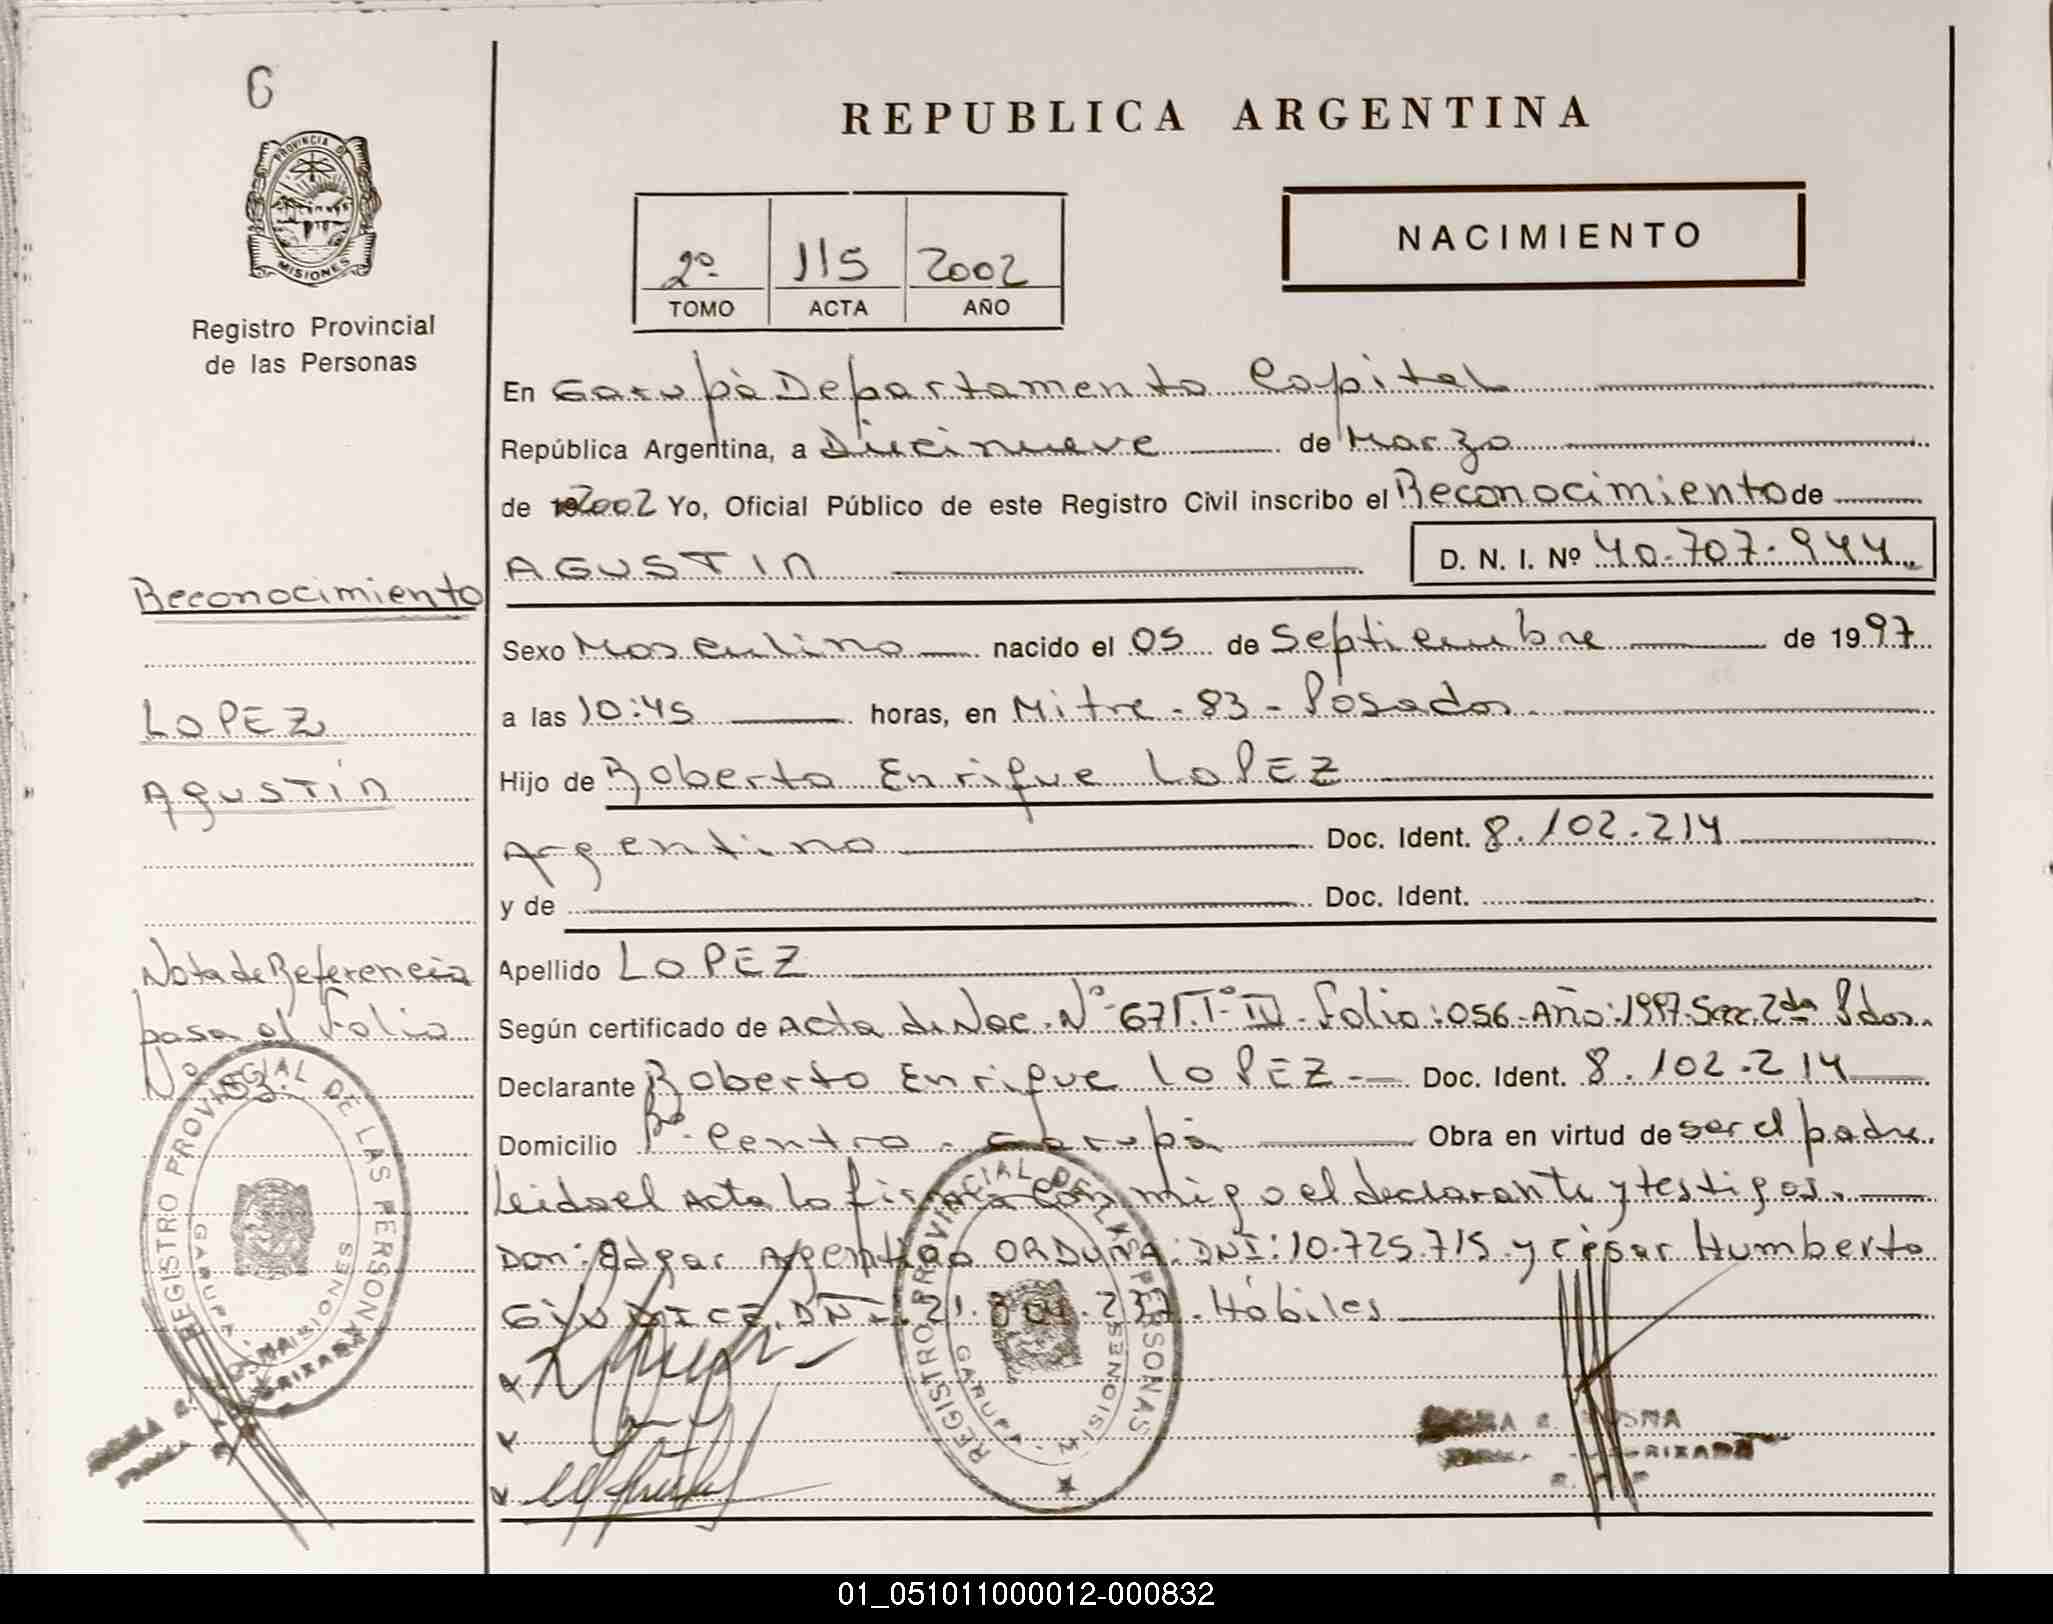 6
REPUBLICA ARGENTINA
PROVINCIA DE
MISIONES
Registro Provincial
de las Personas
2º 115 2002
TOMO ACTA AÑO
NACIMIENTO
En Garupà Departamento Capital
República Argentina, a Diecinueve de Marzo
de 2002 Yo, Oficial Público de este Registro Civil inscribo el Reconocimiento de
AGUSTIN D. N. I. Nº 40.707.944
Reconocimiento
Sexo Masculino nacido el 05 de Septiembre de 1997
LOPEZ
a las 10:45 horas, en Mitre - 83 - Posadas
AgUSTÍN
Hijo de Roberto Enrique LOPEZ
Argentino Doc. Ident. 8.102.214
y de Doc. Ident.
Nota de Referencia
pasa al Folio
Nº 53.
Apellido LOPEZ
Según certificado de Acta de Nac. Nº 671. Tº III - Folio: 056 - Año: 1997. Secc. 2da Pdas.
Declarante Roberto Enrique LOPEZ - Doc. Ident. 8.102.214
Domicilio Bº Centro - Garupà Obra en virtud de ser el padre.
Leida el Acta la firma conmigo el declarante y testigos.
Don: Edgar Argentino ORDUÑA: DNI: 10.725.715 y cèsar Humberto
GIUDICE, DNI: 21. .237. Hábiles
REGISTRO PROVINCIAL DE LAS PERSONAS
GARUPA - MISIONES
REGISTRO PROVINCIAL DE LAS PERSONAS
GARUPA - MISIONES
01_051011000012-000832